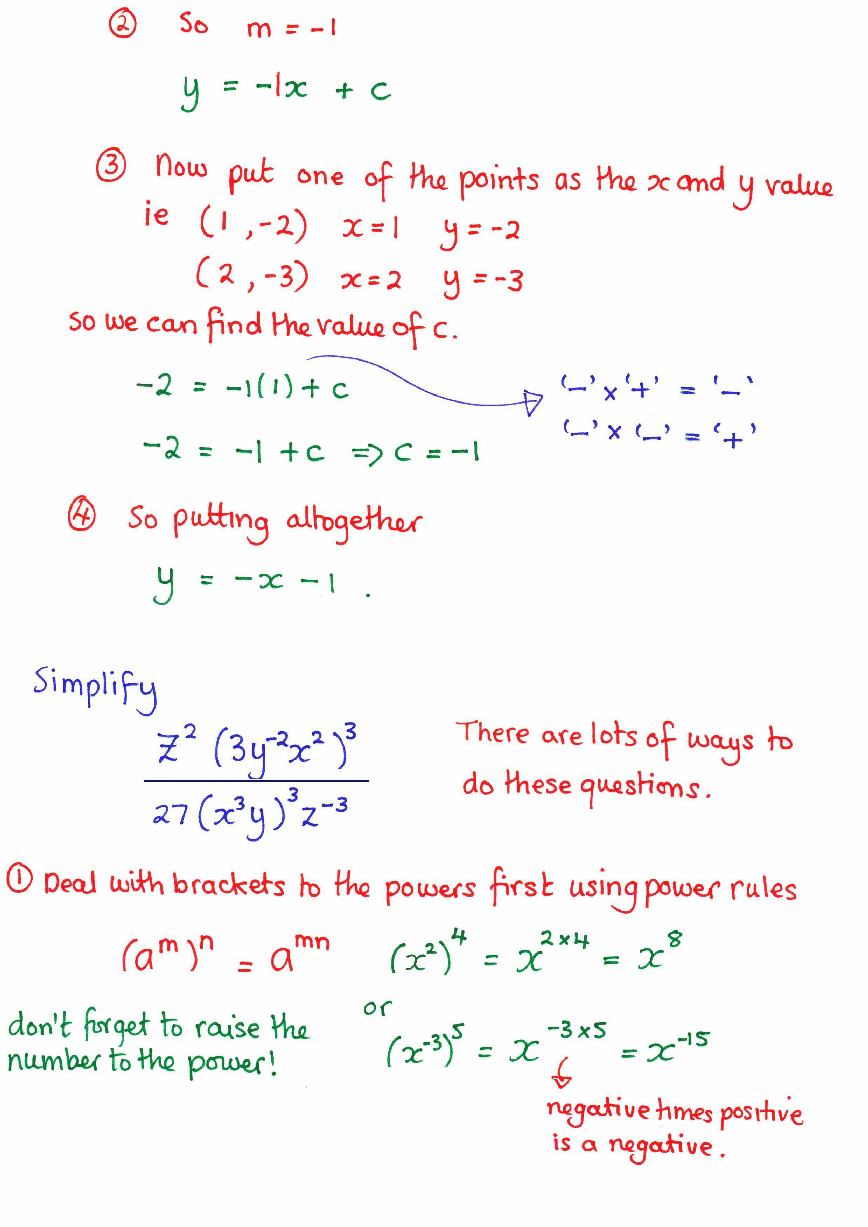 ② So m = -1
y = -1x + c
③ Now put one of the points as the x and y value
ie (1, -2) x = 1 y = -2
(2, -3) x = 2 y = -3
So we can find the value of c.
-2 = -1(1) + c
'-' x '+' = '-'
-2 = -1 + c => c = -1
'-' x '-' = '+'
④ So putting altogether
y = -x - 1 .
Simplify
z² (3y⁻²x²)³
27 (x³y)³ z⁻³
There are lots of ways to
do these questions.
① Deal with brackets to the powers first using power rules
(aᵐ)ⁿ = aᵐⁿ (x²)⁴ = x²ˣ⁴ = x⁸
don't forget to raise the
number to the power!
or
(x⁻³)⁵ = x⁻³ˣ⁵ = x⁻¹⁵
negative times positive
is a negative.